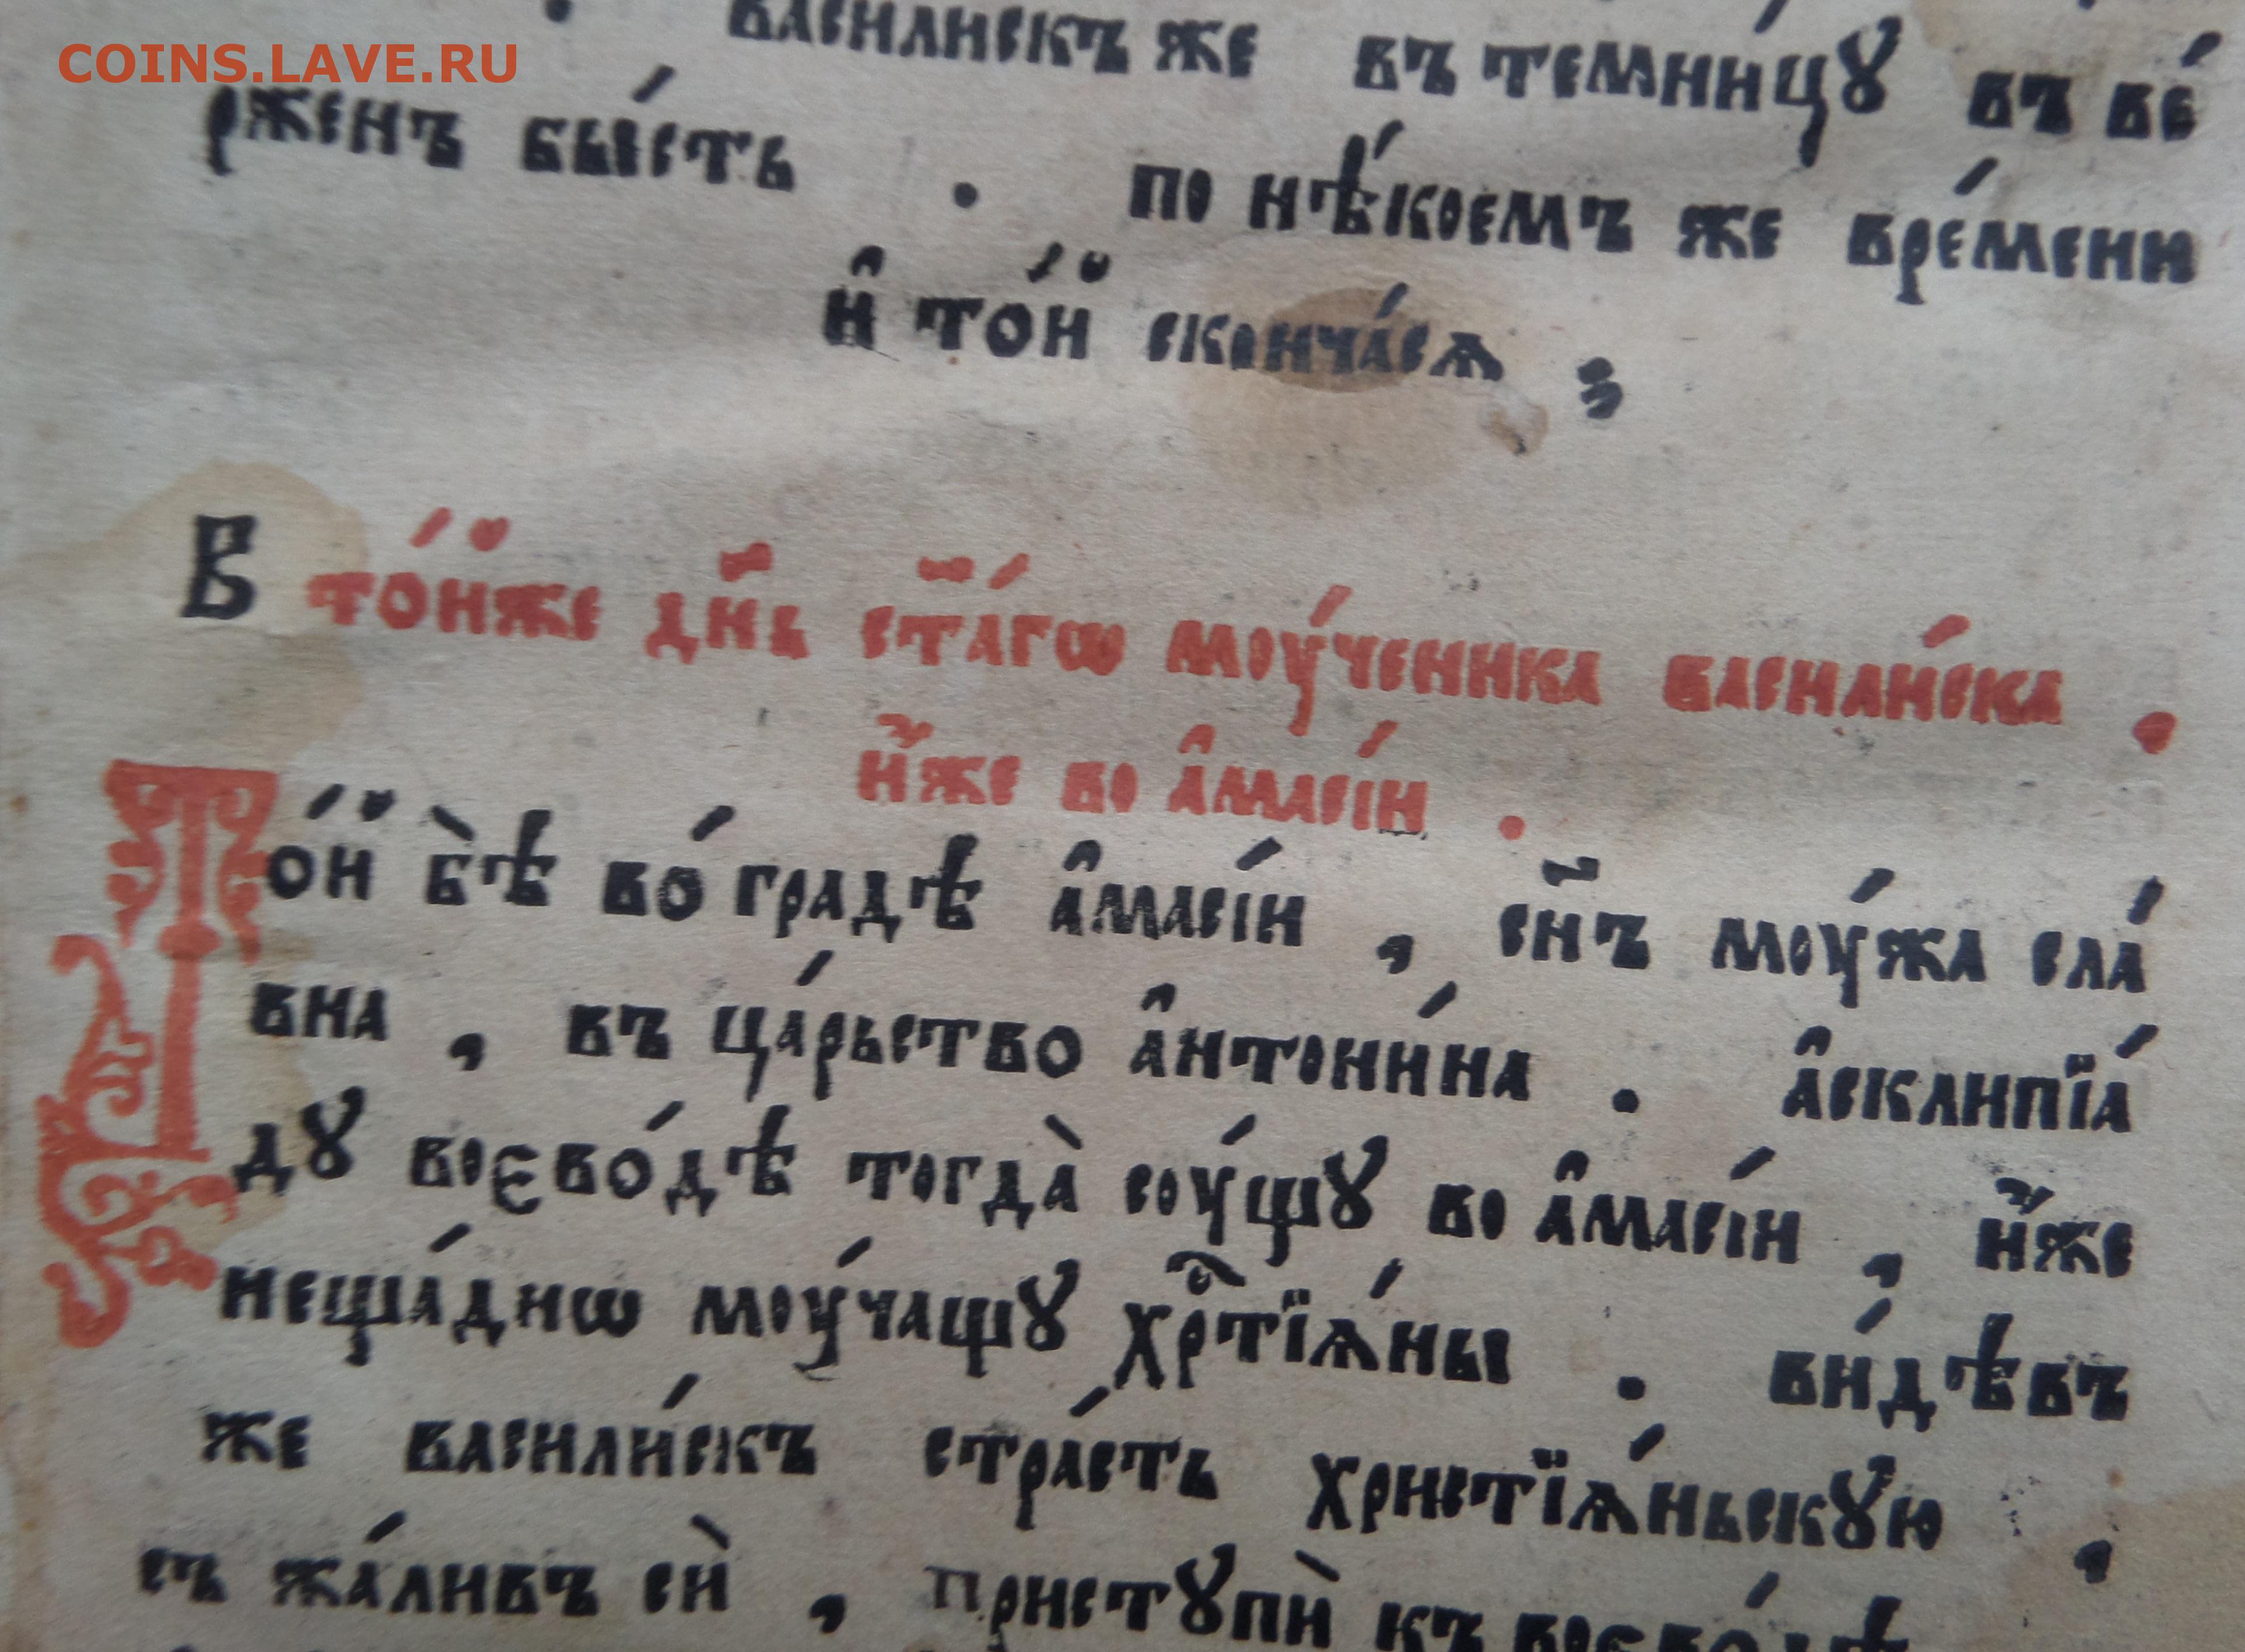 COINS.LAVE.RU
василискъ же въ темни́цꙋ въ ве́
рженъ бысть . по нѣ́коемъ же вре́мени
и҆ то́й сконча́сѧ
В то́йже дн҃ь ст҃а́гѡ моу́ченика васили́ска .
и҆́же во а҆масі́и .
То́й бѣ̀ во́ градѣ а҆масі́и , сн҃ъ моу́жа сла́
вна , въ ца́рьство а҆нтони́на . а҆склипїа́
дꙋ воево́дѣ тогда̀ соу́щꙋ во а҆масі́и , и҆́же
неща́днѡ моу́чащꙋ хрⷭ҇тїѧ́ны . ви́дѣвъ
же васили́скъ стра́сть христїѧ́ньскꙋю ,
съ жа́ливъ сѝ , пристꙋпѝ къ воево́дѣ